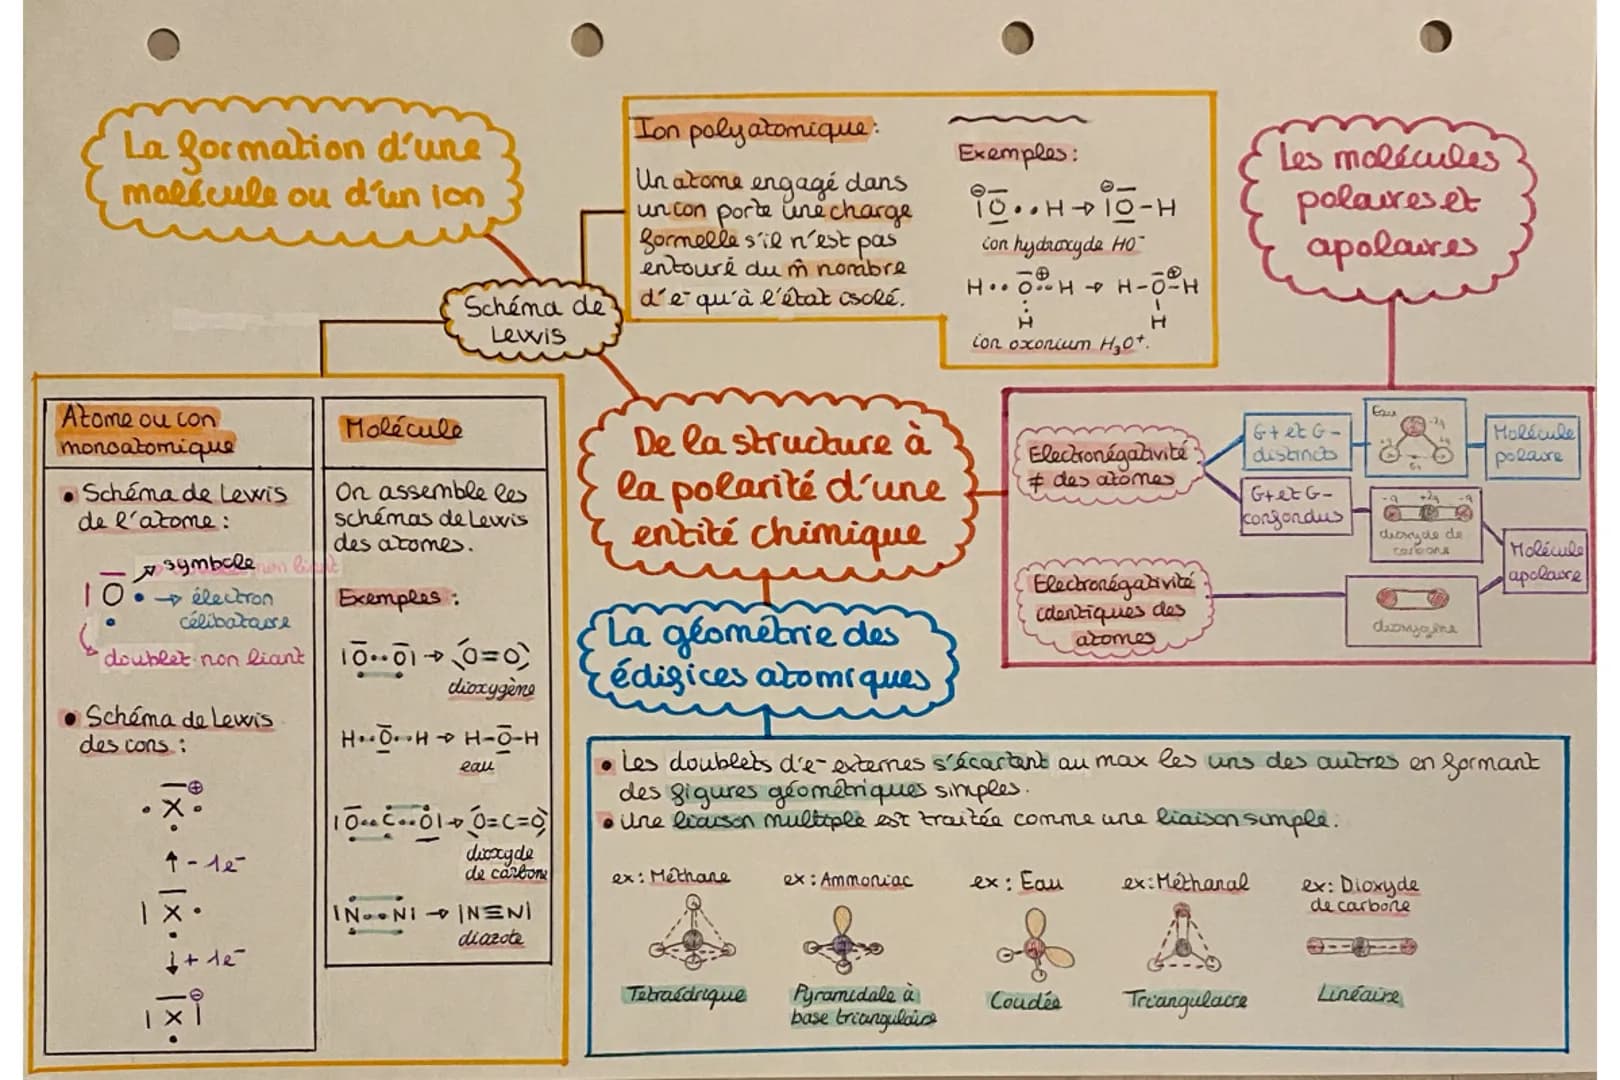 La formation d'une
molécule ou d'un ion
Schéma de
Lewis
Ion polyatomique :
Un atome engagé dans
un ion porte une charge
formelle s'il n'est pas
entouré du m̂ nombre
d'e⁻ qu'à l'état isolé.
Exemples :
ion hydroxyde HO⁻
ion oxonium H₃O⁺.
Les molécules
polaires et
apolaires
Atome ou ion
monoatomique
• Schéma de Lewis
de l'atome :
symbole
électron
célibataire
doublet non liant
• Schéma de Lewis
des ions :
• X • ⊕
↑ - 1e⁻
| X •
↓ + 1e⁻
| X | ⊖
Molécule
On assemble les
schémas de Lewis
des atomes.
Exemples :
|O••O| → O=O
dioxygène
H••O••H → H-O-H
eau
|O••C••O| → O=C=O
dioxyde
de carbone
|N••N| → |N≡N|
diazote
De la structure à
la polarité d'une
entité chimique
Electronégativité
≠ des atomes
G+ et G-
distincts
Eau
Molécule
polaire
G+ et G-
confondus
-q +2q -q
dioxyde de
carbone
Molécule
apolaire
Electronégativité
identiques des
atomes
dioxygène
La géométrie des
édifices atomiques
• Les doublets d'e- externes s'écartent au max les uns des autres en formant
des figures géométriques simples.
• une liaison multiple est traitée comme une liaison simple.
ex : Méthane
ex : Ammoniac
ex : Eau
ex : Méthanal
ex : Dioxyde
de carbone
Tetraédrique
Pyramidale à
base triangulaire
Coudée
Triangulaire
Linéaire